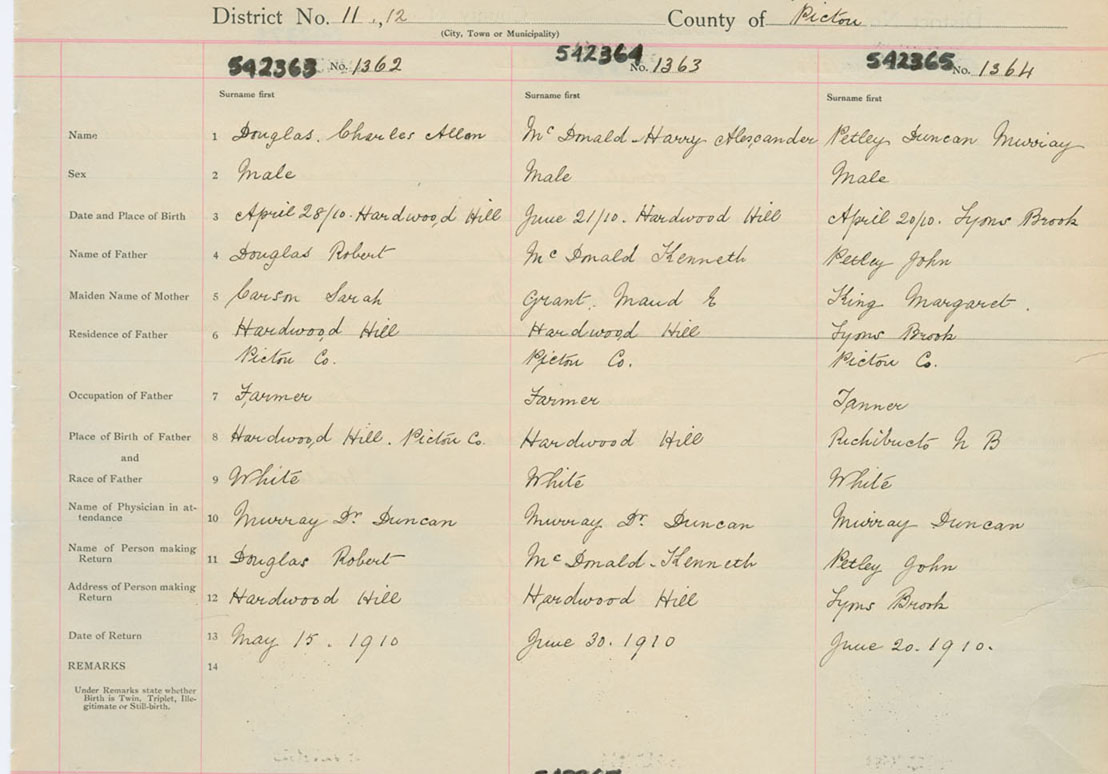 District No. 11, 12 County of Pictou
(City, Town or Municipality)
542363 No. 1362 542364 No. 1363 542365 No. 1364
Surname first Surname first Surname first
Name 1 Douglas. Charles Allan McDonald Harry Alexander Petley Duncan Murray
Sex 2 Male Male Male
Date and Place of Birth 3 April 28/10. Hardwood Hill June 21/10. Hardwood Hill April 20/10. Lyons Brook
Name of Father 4 Douglas Robert McDonald Kenneth Petley John
Maiden Name of Mother 5 Carson Sarah Grant. Maud E King Margaret.
Residence of Father 6 Hardwood Hill Hardwood Hill Lyons Brook
Pictou Co. Pictou Co. Pictou Co.
Occupation of Father 7 Farmer Farmer Tanner
Place of Birth of Father 8 Hardwood Hill. Pictou Co. Hardwood Hill Richibucto N B
and
Race of Father 9 White White White
Name of Physician in at-
tendance 10 Murray Dr. Duncan Murray Dr. Duncan Murray Duncan
Name of Person making
Return 11 Douglas Robert McDonald - Kenneth Petley John
Address of Person making
Return 12 Hardwood Hill Hardwood Hill Lyons Brook
Date of Return 13 May 15. 1910 June 30. 1910 June 20. 1910.
REMARKS 14
Under Remarks state whether
Birth is Twin, Triplet, Ille-
gitimate or Still-birth.